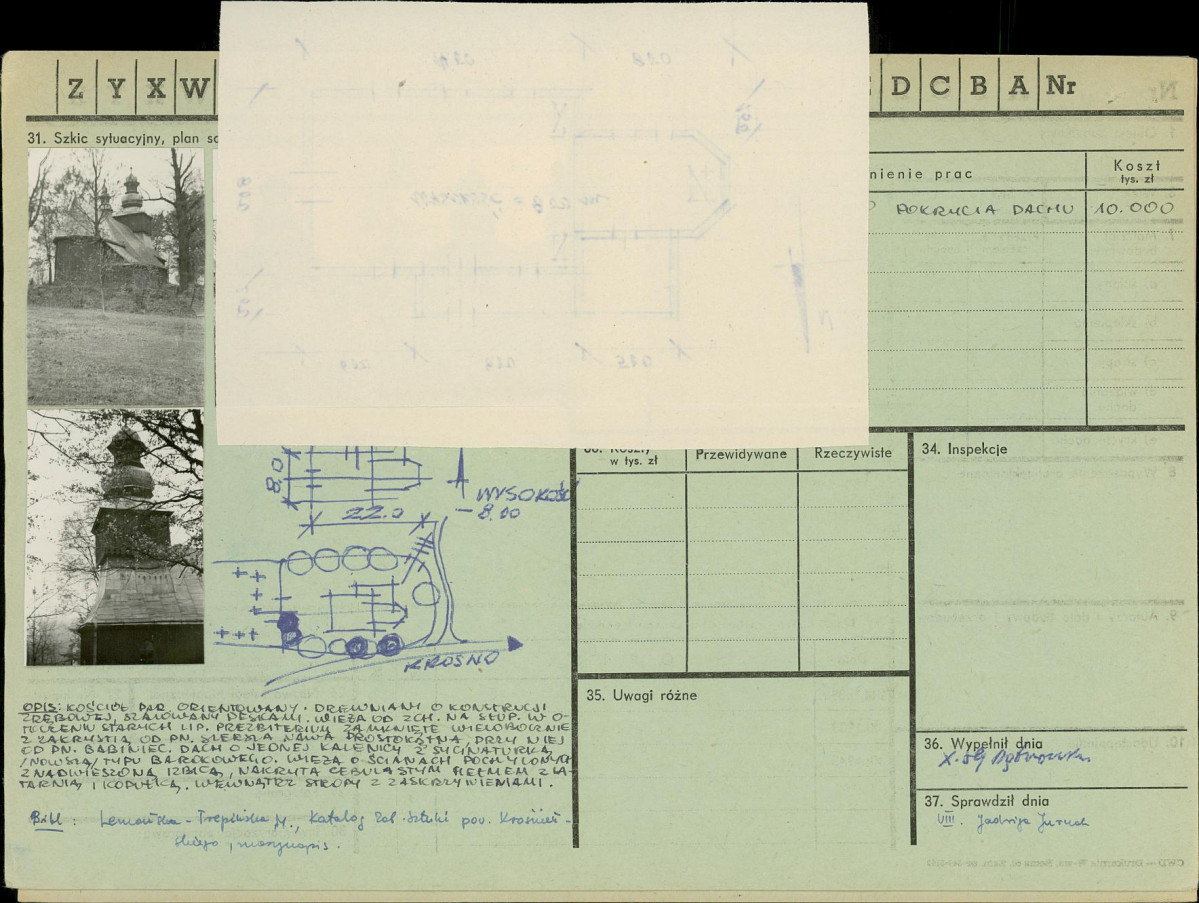 Z Y X W
D C B A Nr
31. Szkic sytuacyjny, plan
nienie prac
Koszt
tys. zł
POKRYCIA DACHU 10.000
w tys. zł
Przewidywane
Rzeczywiste
34. Inspekcje
8.0
WYSOKOŚĆ
8.00
22.0
KROSNO
35. Uwagi różne
36. Wypełnił dnia
X.59
37. Sprawdził dnia
VIII. Jadwiga
OPIS: KOŚCIÓŁ PAR. ORIENTOWANY. DREWNIANY O KONSTRUKCJI
ZRĘBOWEJ, SZALOWANY DESKAMI. WIEŻA OD ZCH. NA SŁUP. W O-
TOCZENIU STARYCH LIP. PREZBITERIUM ZAMKNIĘTE WIELOBOCZNIE
Z ZAKRYSTIĄ OD PN. SZERSZA NAWA PROSTOKĄTNA PRZY NIEJ
OD PN. BABINIEC. DACH O JEDNEJ KALENICY Z SYGNATURKĄ
/NOWSZĄ/ TYPU BAROKOWEGO. WIEŻA O ŚCIANACH POCHYŁONYCH
Z NADWIESZONĄ IZBICĄ, NAKRYTA CEBULASTYM HEŁMEM Z LA-
TARNIĄ I KOPUŁKĄ. WEWNĄTRZ STROPY Z ZASKRZYNIENIAMI.
Bibl: M., Katalog Zab. Sztuki pow. Krośnień-
skiego, maszynopis.